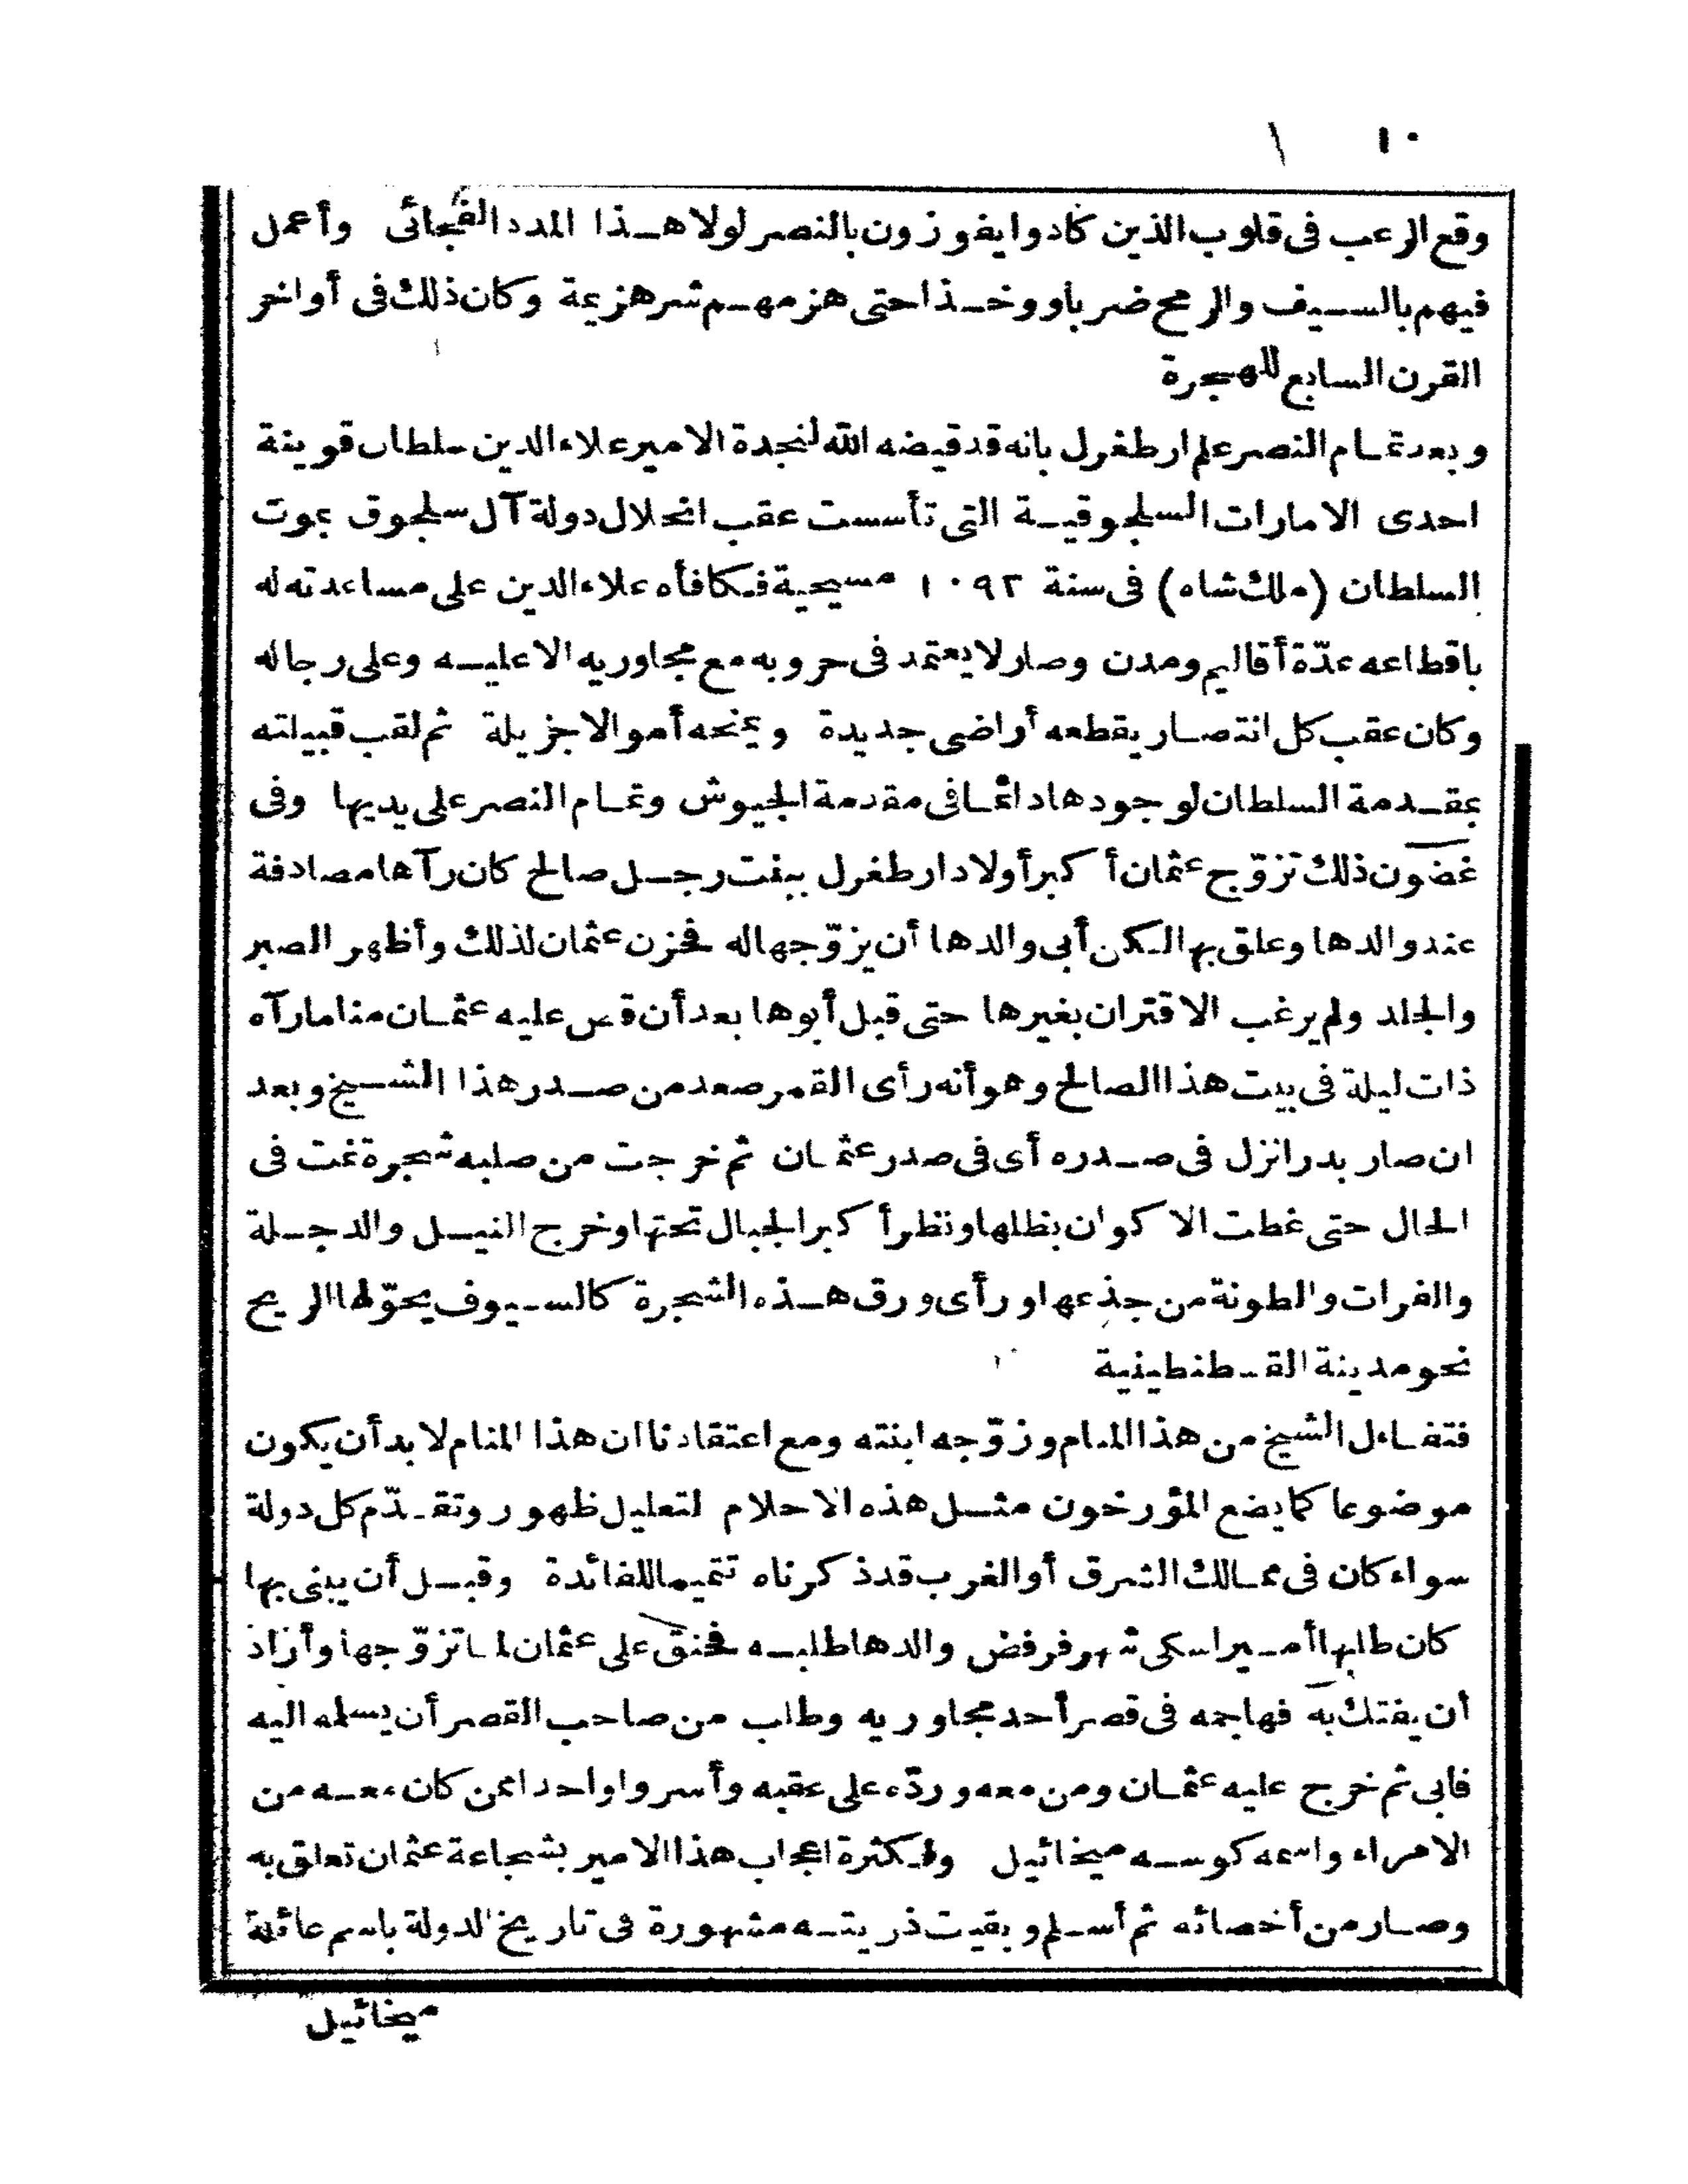 ١٠
وقع الرعب فى قلوب الذين كادوا يفوزون بالنصر لولا هذا المدد الفجائى وأعمل
فيهم بالسيف والرمح ضربا ووخذا حتى هزمهم شر هزيمة وكان ذلك فى أواخر
القرن السابع للهجرة
وبعد تمام النصر علم ارطغرل بانه قد قيضه الله لنجدة الامير علاء الدين سلطان قوينة
احدى الامارات السلجوقية التى تأسست عقب انحلال دولة آل سلجوق بموت
السلطان (ملك شاه) فى سنة ١٠٩٢ مسيحية فكافأه علاء الدين على مساعدته له
باقطاعه عدّة أقاليم ومدن وصار لا يعتمد فى حروبه مع مجاوريه الا عليه وعلى رجاله
وكان عقب كل انتصار يقطعه أراضى جديدة ويمنحه أموالا جزيلة ثم لقب قبيلته
بمقدمة السلطان لوجودها دائما فى مقدمة الجيوش وتمام النصر على يديها وفى
غضون ذلك تزوّج عثمان أكبر أولاد ارطغرل ببنت رجل صالح كان رآها مصادفة
عند والدها وعلق بها لكن أبى والدها أن يزوّجها له فحزن عثمان لذلك وأظهر الصبر
والجلد ولم يرغب الاقتران بغيرها حتى قبل أبوها بعد أن قص عليه عثمان مناما رآه
ذات ليلة فى بيت هذا الصالح وهو أنه رأى القمر صعد من صدر هذا الشيخ وبعد
ان صار بدرا نزل فى صدره أى فى صدر عثمان ثم خرجت من صلبه شجرة نمت فى
الحال حتى غطت الاكوان بظلها ونظر أكبر الجبال تحتها وخرج النيل والدجلة
والفرات والطونة من جذعها ورأى ورق هذه الشجرة كالسيوف يحوّلها الريح
نحو مدينة القسطنطينية
فتفاءل الشيخ من هذا المنام وزوّجه ابنته ومع اعتقادنا ان هذا المنام لا بد أن يكون
موضوعا كما يضع المؤرخون مثل هذه الاحلام لتعليل ظهور وتقدّم كل دولة
سواء كان فى ممالك الشرق أو الغرب قد ذكرناه تتميما للفائدة وقبل أن يبنى بها
كان طلبها أمير اسكى شهر فرفض والدها طلبه فحنق على عثمان لما تزوّجها وأراد
أن يفتك به فهاجمه فى قصر أحد مجاوريه وطلب من صاحب القصر أن يسلمه اليه
فابى ثم خرج عليه عثمان ومن معه وردّه على عقبه وأسروا واحدا ممن كان معه من
الامراء واسمه كوسه ميخائيل ولكثرة اعجاب هذا الامير بشجاعة عثمان تعلق به
وصار من أخصائه ثم أسلم وبقيت ذريته مشهورة فى تاريخ الدولة باسم عائلة
ميخائيل